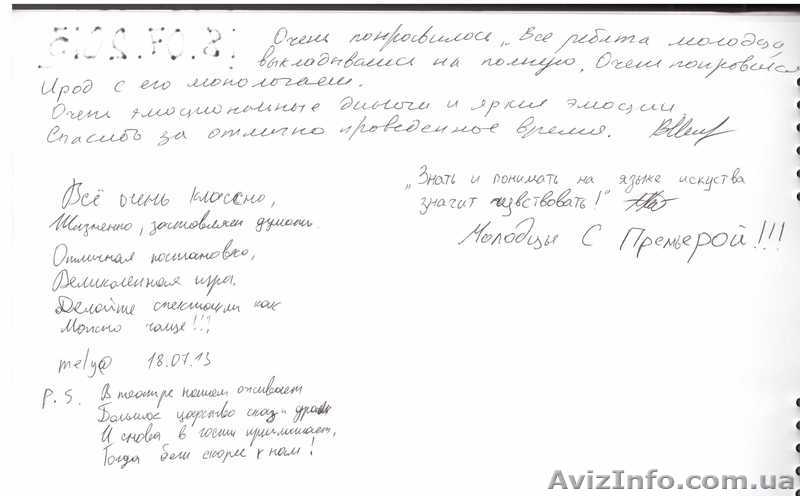 18.07.2013
Очень понравилось, Все ребята молодцы
выкладывались на полную. Очень понравился
Ирод с его монологами.
Очень эмоциональные диалоги и яркие эмоции
Спасибо за отлично проведенное время.
Всё очень классно,
Жизненно, заставляет думать.
Отличная постановка,
Великолепная игра.
Делайте спектакли как
Можно чаще!!!
mely@ 18.07.13
P.S. В театре нашем оживает
Большое царство сказ и драм
И снова в гости приглашает,
Тогда беги скорее к нам!
„Знать и понимать на языке искуства
значит чувствовать!"
Молодцы С Премьерой!!!
AvizInfo.com.ua